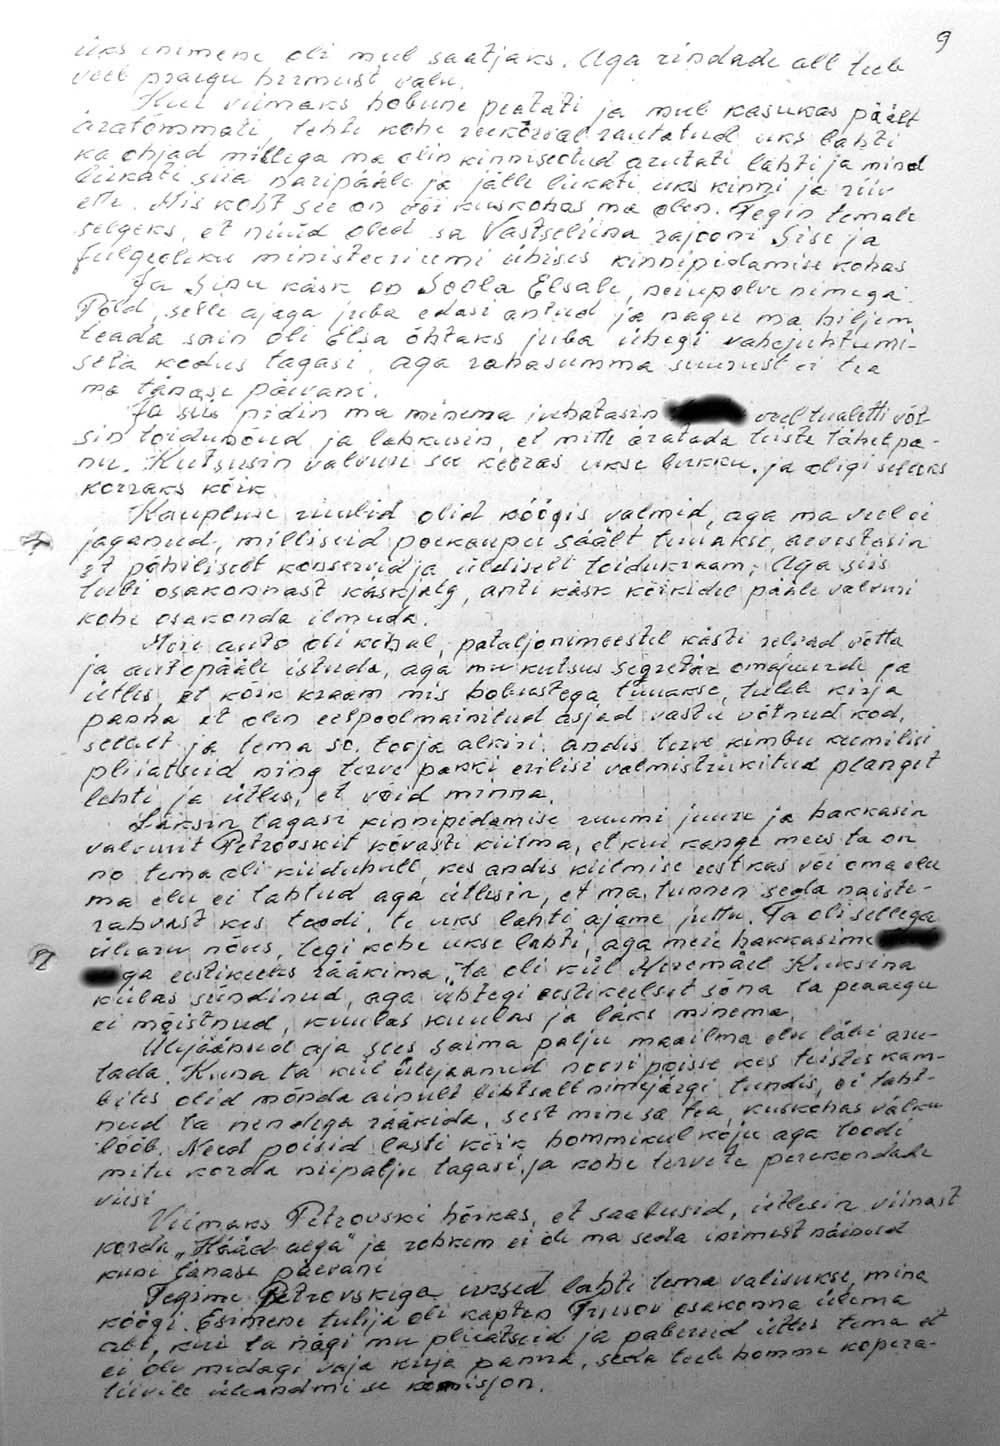 9
üks inimene oli mul saatjaks. Aga rindade all teeb
veel praegu hirmust valu.
Kui viimaks hobune peatati ja mul kasukas päält
äratõmmati, tehti kohe reekõrval rautatud uks lahti
ka ohjad millega ma olin kinniseotud arutati lahti ja mind
lükati siia naripääle ja jälle lükati uks kinni ja riiv
ette. Mis koht see on või kuskohas ma olen. Tegin temale
selgeks, et nüüd oled sa Vastseliina rajooni Sise ja
julgeoleku ministeeriumi ühises kinnipidamise kohas
Ja Sinu käsk on Soola Elsale, neiupõlve nimega
Põld, selle ajaga juba edasi antud ja nagu ma hiljem
teada sain oli Elsa õhtaks juba ühegi vahejuhtumi-
seta kodus tagasi, aga rahasumma suurust ei tea
ma tänase päevani.
Ja siis pidin ma minema juhatasin veel tualetti võt-
sin toidunõud ja lahkusin, et mitte äratada teiste tähelpa-
nu. Kutsusin valvuri see keeras ukse lukku. ja oligi selleks
korraks kõik
Kaupluse riiulid olid köögis valmid, aga ma veel ei
jaganud, milliseid poekaupu säält tuuakse, arvestasin
et põhiliselt konservid ja üldiselt toidukraam. Aga siis
tuli osakonnast käskjalg, anti käsk kõikidel pääle valvuri
kohe osakonda ilmuda.
Meie auto oli kohal, pataljonimeestel kästi relvad võtta
ja autopääle istuda, aga mu kutsus segretär omajuurde ja
ütles, et kõik kraam mis hobustega tuuakse, tuleb kirja
panna et olen eelpoolmainitud asjad vastu võtnud kod.
sellelt ja tema so. tooja alkiri. andis terve kimbu keemilisi
pliiatseid ning terve pakki erilisi valmistrükitud planget
lehti ja ütles, et võid minna.
Läksin tagasi kinnipidamise ruumi juure ja hakkasin
valvurit Petrovskit kõvasti kiitma, et kui kange mees ta on
no tema oli kiiduhull, kes andis kiitmise eest kas või oma elu
ma elu ei tahtud aga ütlesin, et ma tunnen seda naiste-
rahvast kes toodi, te uks lahti ajame juttu. Ta oli sellega
üliaru nõus, tegi kohe ukse lahti, aga meie hakkasime
ga eestikeeles rääkima, ta oli küll Meremäel Kuksina
külas sündinud, aga ühtegi eestikeelset sõna ta peaaegu
ei mõistnud, kuulas kuulas ja läks minema.
Ülejäänud aja sees saima palju maailma elu läbi aru-
tada. Kuna ta küll ülejäänud noori poisse kes teistes kam-
brites olid mõnda ainult lihtsalt nimejärgi tundis, ei taht-
nud ta nendega rääkida, sest mine sa tea, kuskohas välku
lööb. Need poisid lasti kõik hommikul koju aga toodi
mitu korda niipalju tagasi. ja kohe tervete perekondade
viisi
Viimaks Petrovski hõikas, et saabusid, ütlesin viimast
korda „Hääd aega" ja rohkem ei ole ma seda inimest näinud
kuni tänase päevani
Tegime Petrovskiga uksed lahti tema välisukse, mina
köögi. Esimene tulija oli kapten Trusov osakonna ülema
abi, kui ta nägi mu pliiatseid ja pabereid ütles tema et
ei ole midagi vaja kirja panna, seda teeb homme kopera-
tiivile üleandmise komisjon.